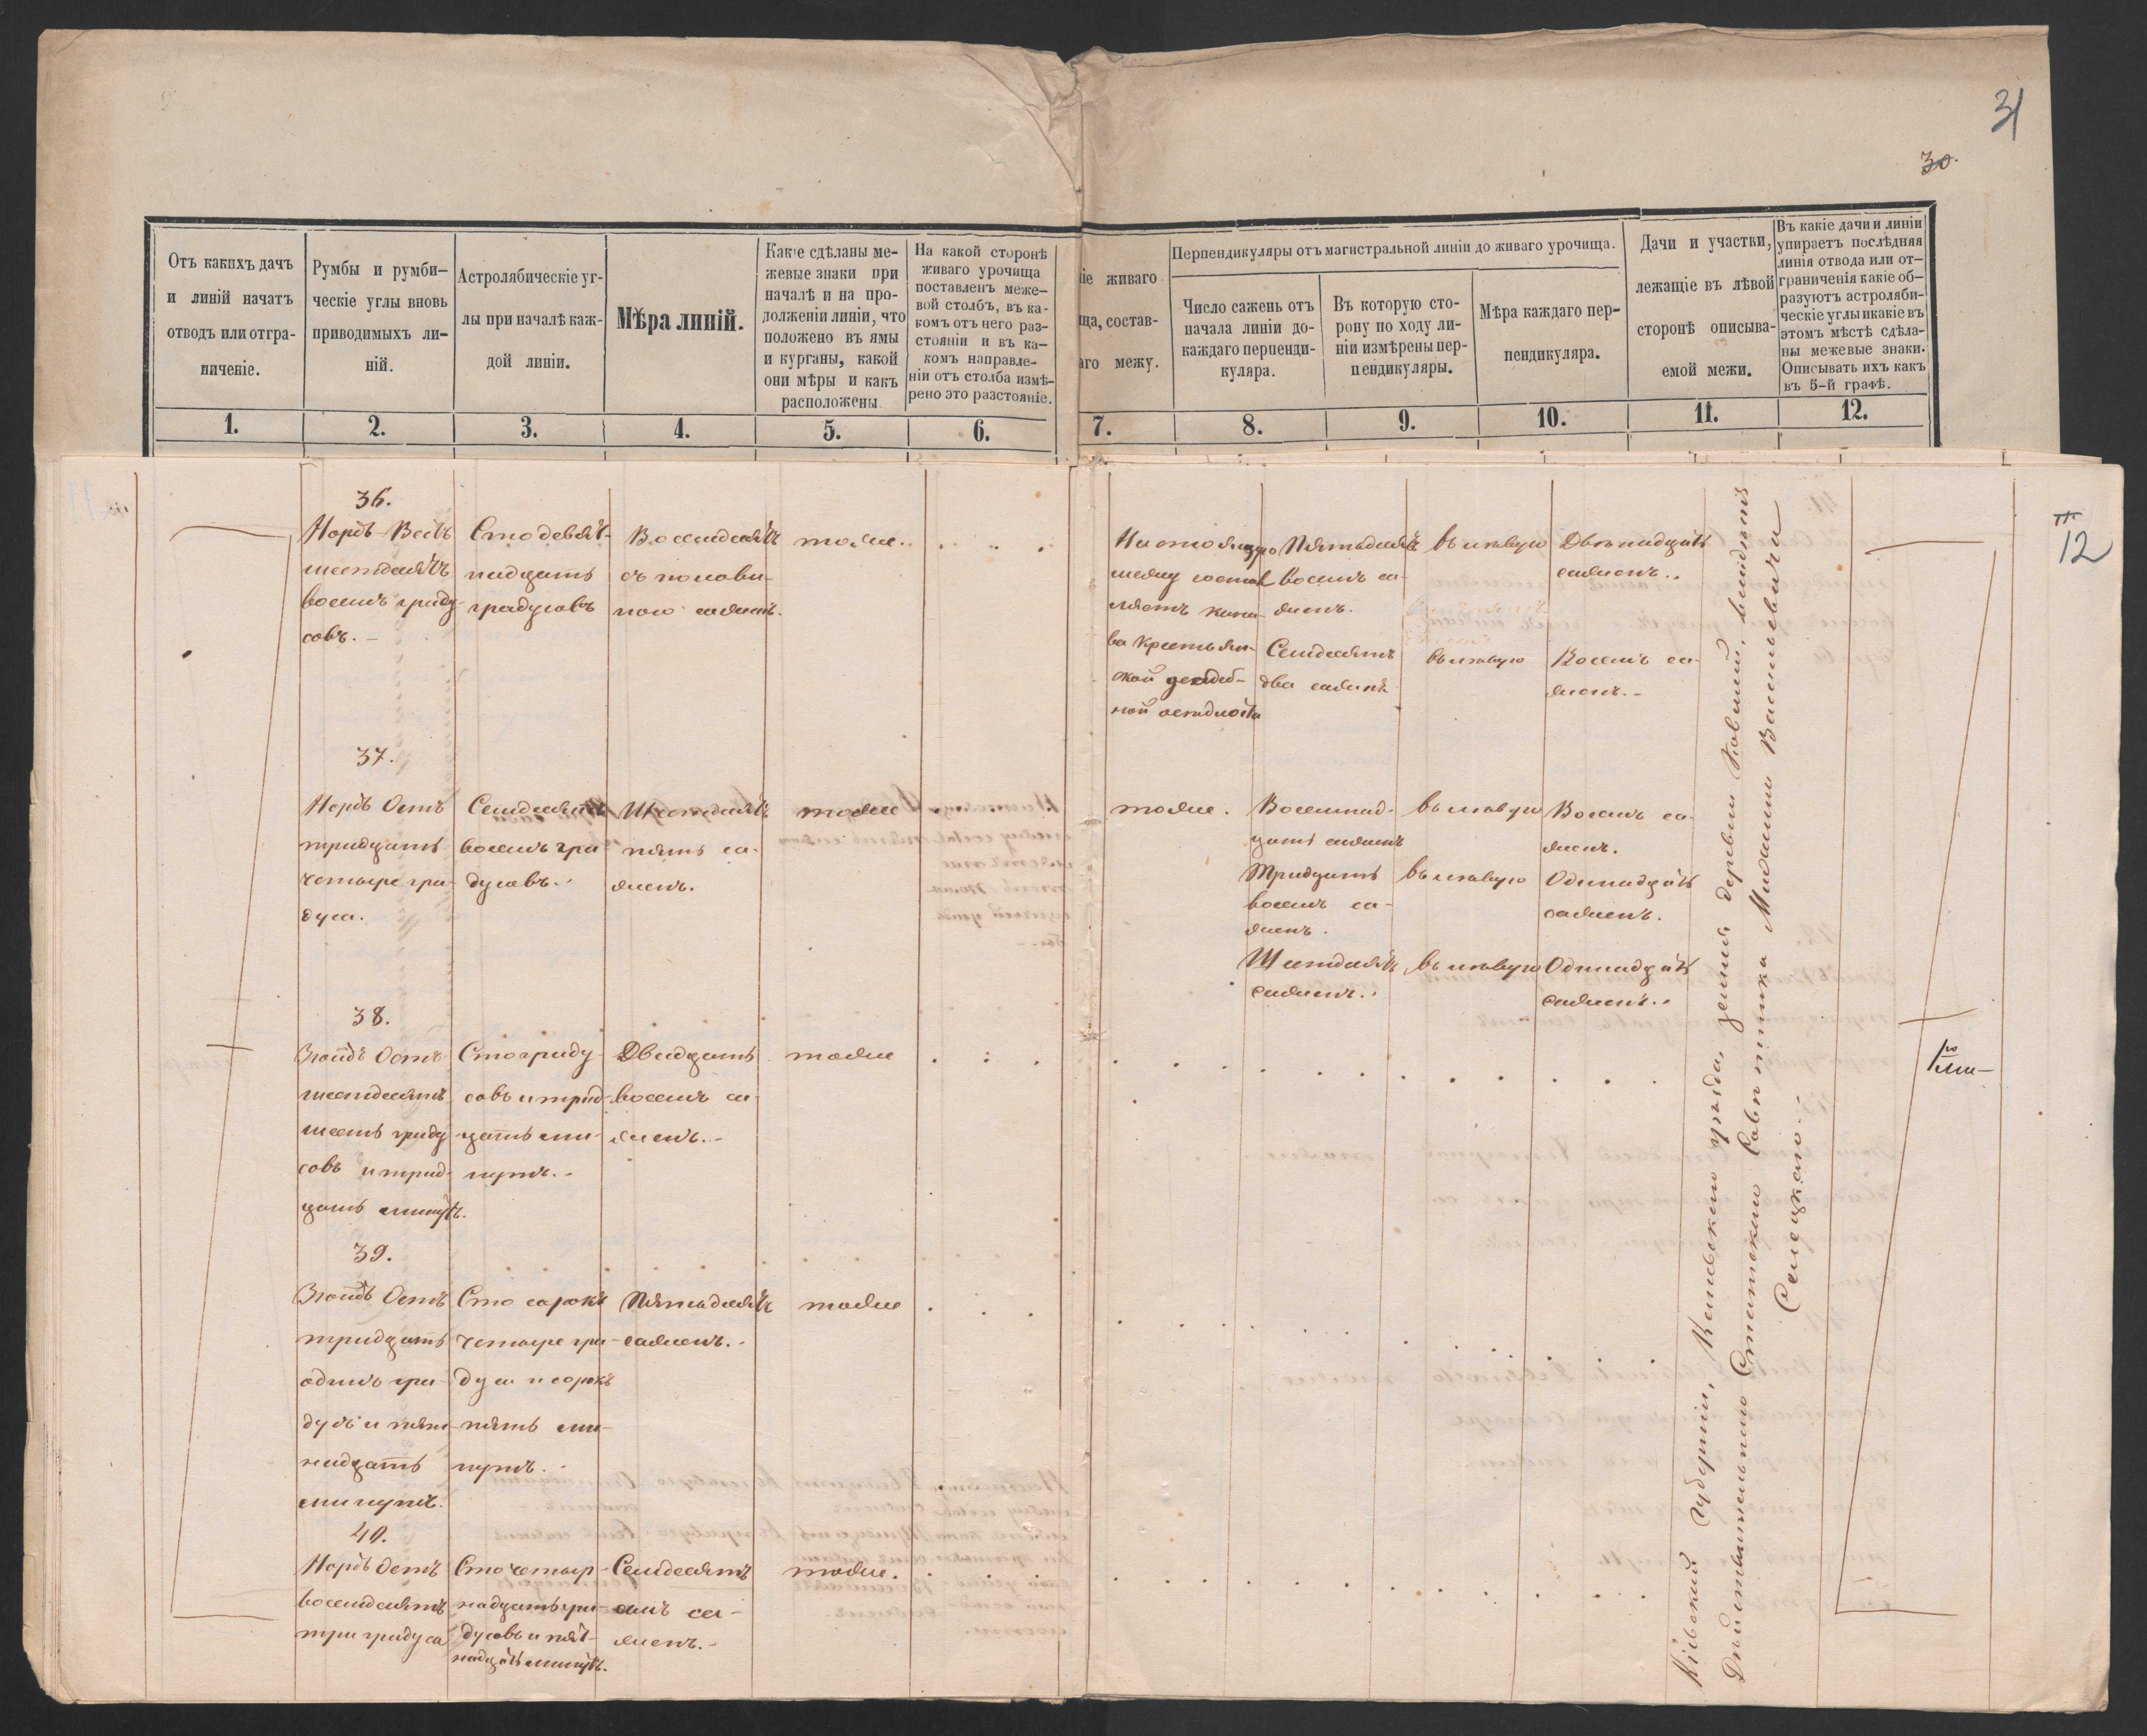 31
30.
Отъ какихъ дачъ
и линій начатъ
отводъ или отгра-
ниченіе.
Румбы и румби-
ческіе углы вновь
приводимыхъ ли-
ній.
Астролябическіе уг-
лы при началѣ каж-
дой линіи.
Мѣра линій.
Какіе сдѣланы ме-
жевые знаки при
началѣ и на про-
долженіи линіи, что
положено въ ямы
и курганы, какой
они мѣры и какъ
расположены.
На какой сторонѣ
живаго урочища
поставленъ меже-
вой столбъ, въ ка-
комъ отъ него раз-
стояніи и въ ка-
комъ направле-
ніи отъ столба измѣ-
рено это разстояніе.
іе живаго
ща, состав-
аго межу.
Перпендикуляры отъ магистральной линіи до живаго урочища.
Число сажень отъ
начала линіи до-
каждаго перпенди-
куляра.
Въ которую сто-
рону по ходу ли-
ніи измѣрены пер-
пендикуляры.
Мѣра каждаго пер-
пендикуляра.
Дачи и участки,
лежащіе въ лѣвой
сторонѣ описыва-
емой межи.
Въ какіе дачи и линіи
упираетъ послѣдняя
линія отвода или от-
граниченія какіе об-
разуютъ астроляби-
ческіе углы и какіе въ
этомъ мѣстѣ сдѣла-
ны межевые знаки.
Описывать ихъ какъ
въ 5-й графѣ.
1. 2. 3. 4. 5. 6. 7. 8. 9. 10. 11. 12.
12
36.
Нордъ-Вестъ
шестдесятъ
восемь граду-
совъ.-
Сто девят-
надцать
градусовъ
Восемдесятъ
съ полови-
ною сажень.
тоже.
Настоящую
межу состав
ляетъ кана-
ва крестьян-
ской усадеб-
ной осѣдлости
Пятьдесятъ
восемь са-
жень.
въ лѣвую
Двѣнадцать
сажень..
Семдесятъ
два сажень
въ лѣвую
Восемь са-
жень.-
37.
Нордъ Остъ
тридцать
четыре гра-
дуса.
Семдесятъ
восемь гра-
дусовъ.
Шестдесятъ
пять са-
жень.
тоже
тоже.
Восемнад-
цать сажень
въ лѣвую
Восемь са-
жень.
Тридцать
восемь са-
жень.
въ лѣвую
Одинадцать
сажень.
Шестдесятъ
сажень.
въ лѣвую
Одинадцать
сажень.
38.
Зюйдъ Остъ
шестдесятъ
шесть граду-
совъ и трид-
цать минутъ.
Сто граду-
совъ и трид-
цать ми-
нутъ.-
Двадцать
восемь са-
жень.-
тоже
39.
Зюйдъ Остъ
тридцать
одинъ гра-
дусъ и пят-
надцать
минутъ.
Сто сорокъ
четыре гра-
дуса и сорокъ
пять ми-
нутъ.
Пятьдесятъ
сажень.
тоже
40.
Нордъ Остъ
восемдесятъ
три градуса
Сто четыр-
надцать гра-
дусовъ и пят-
надцать минутъ.
Семдесятъ
семъ са-
жень.-
тоже.
Кіевской губерніи, Каневскаго уѣзда, земля деревни Ковалей, владѣнія
Дѣйствительнаго Статскаго Совѣтника Михаила Васильевича
Селецкаго.-